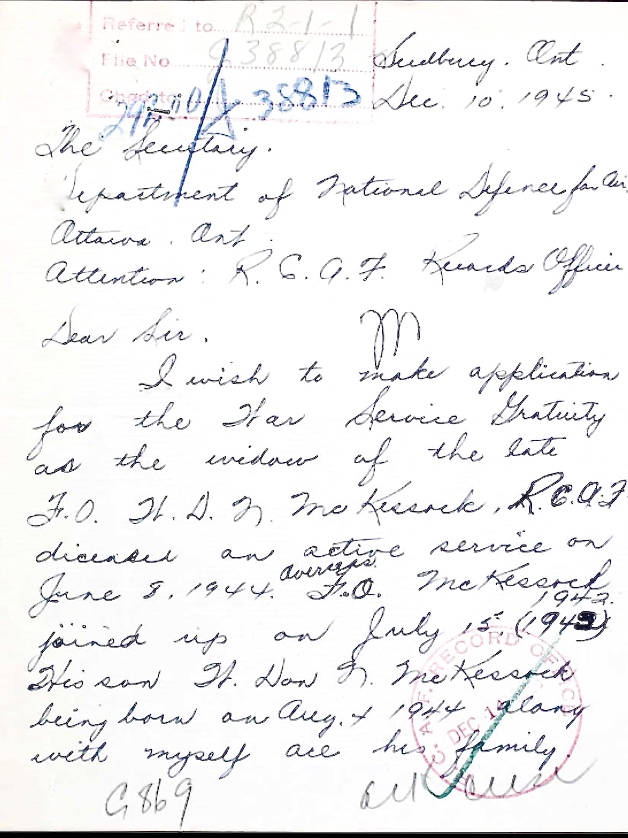 Referred to R2-1-1
File No J38813
Sudbury. Ont.
Charged to 38813
Dec. 10. 1945.
The Secretary.
Department of National Defence for Air
Ottawa. Ont.
Attention: R.C.A.F. Records Officer
Dear Sir.
I wish to make application
for the War Service Gratuity
as the widow of the late
F.O. W. D. N. McKessock, R.C.A.F
diceased on active service on
overseas.
June 8, 1944. F.O. McKessock
1942.
joined up on July 15 (1942)
His son W. Don N. McKessock
being born on Aug. 4 1944 along
with myself are his family
R.C.A.F. RECORD OFFICE
DEC 14
G869